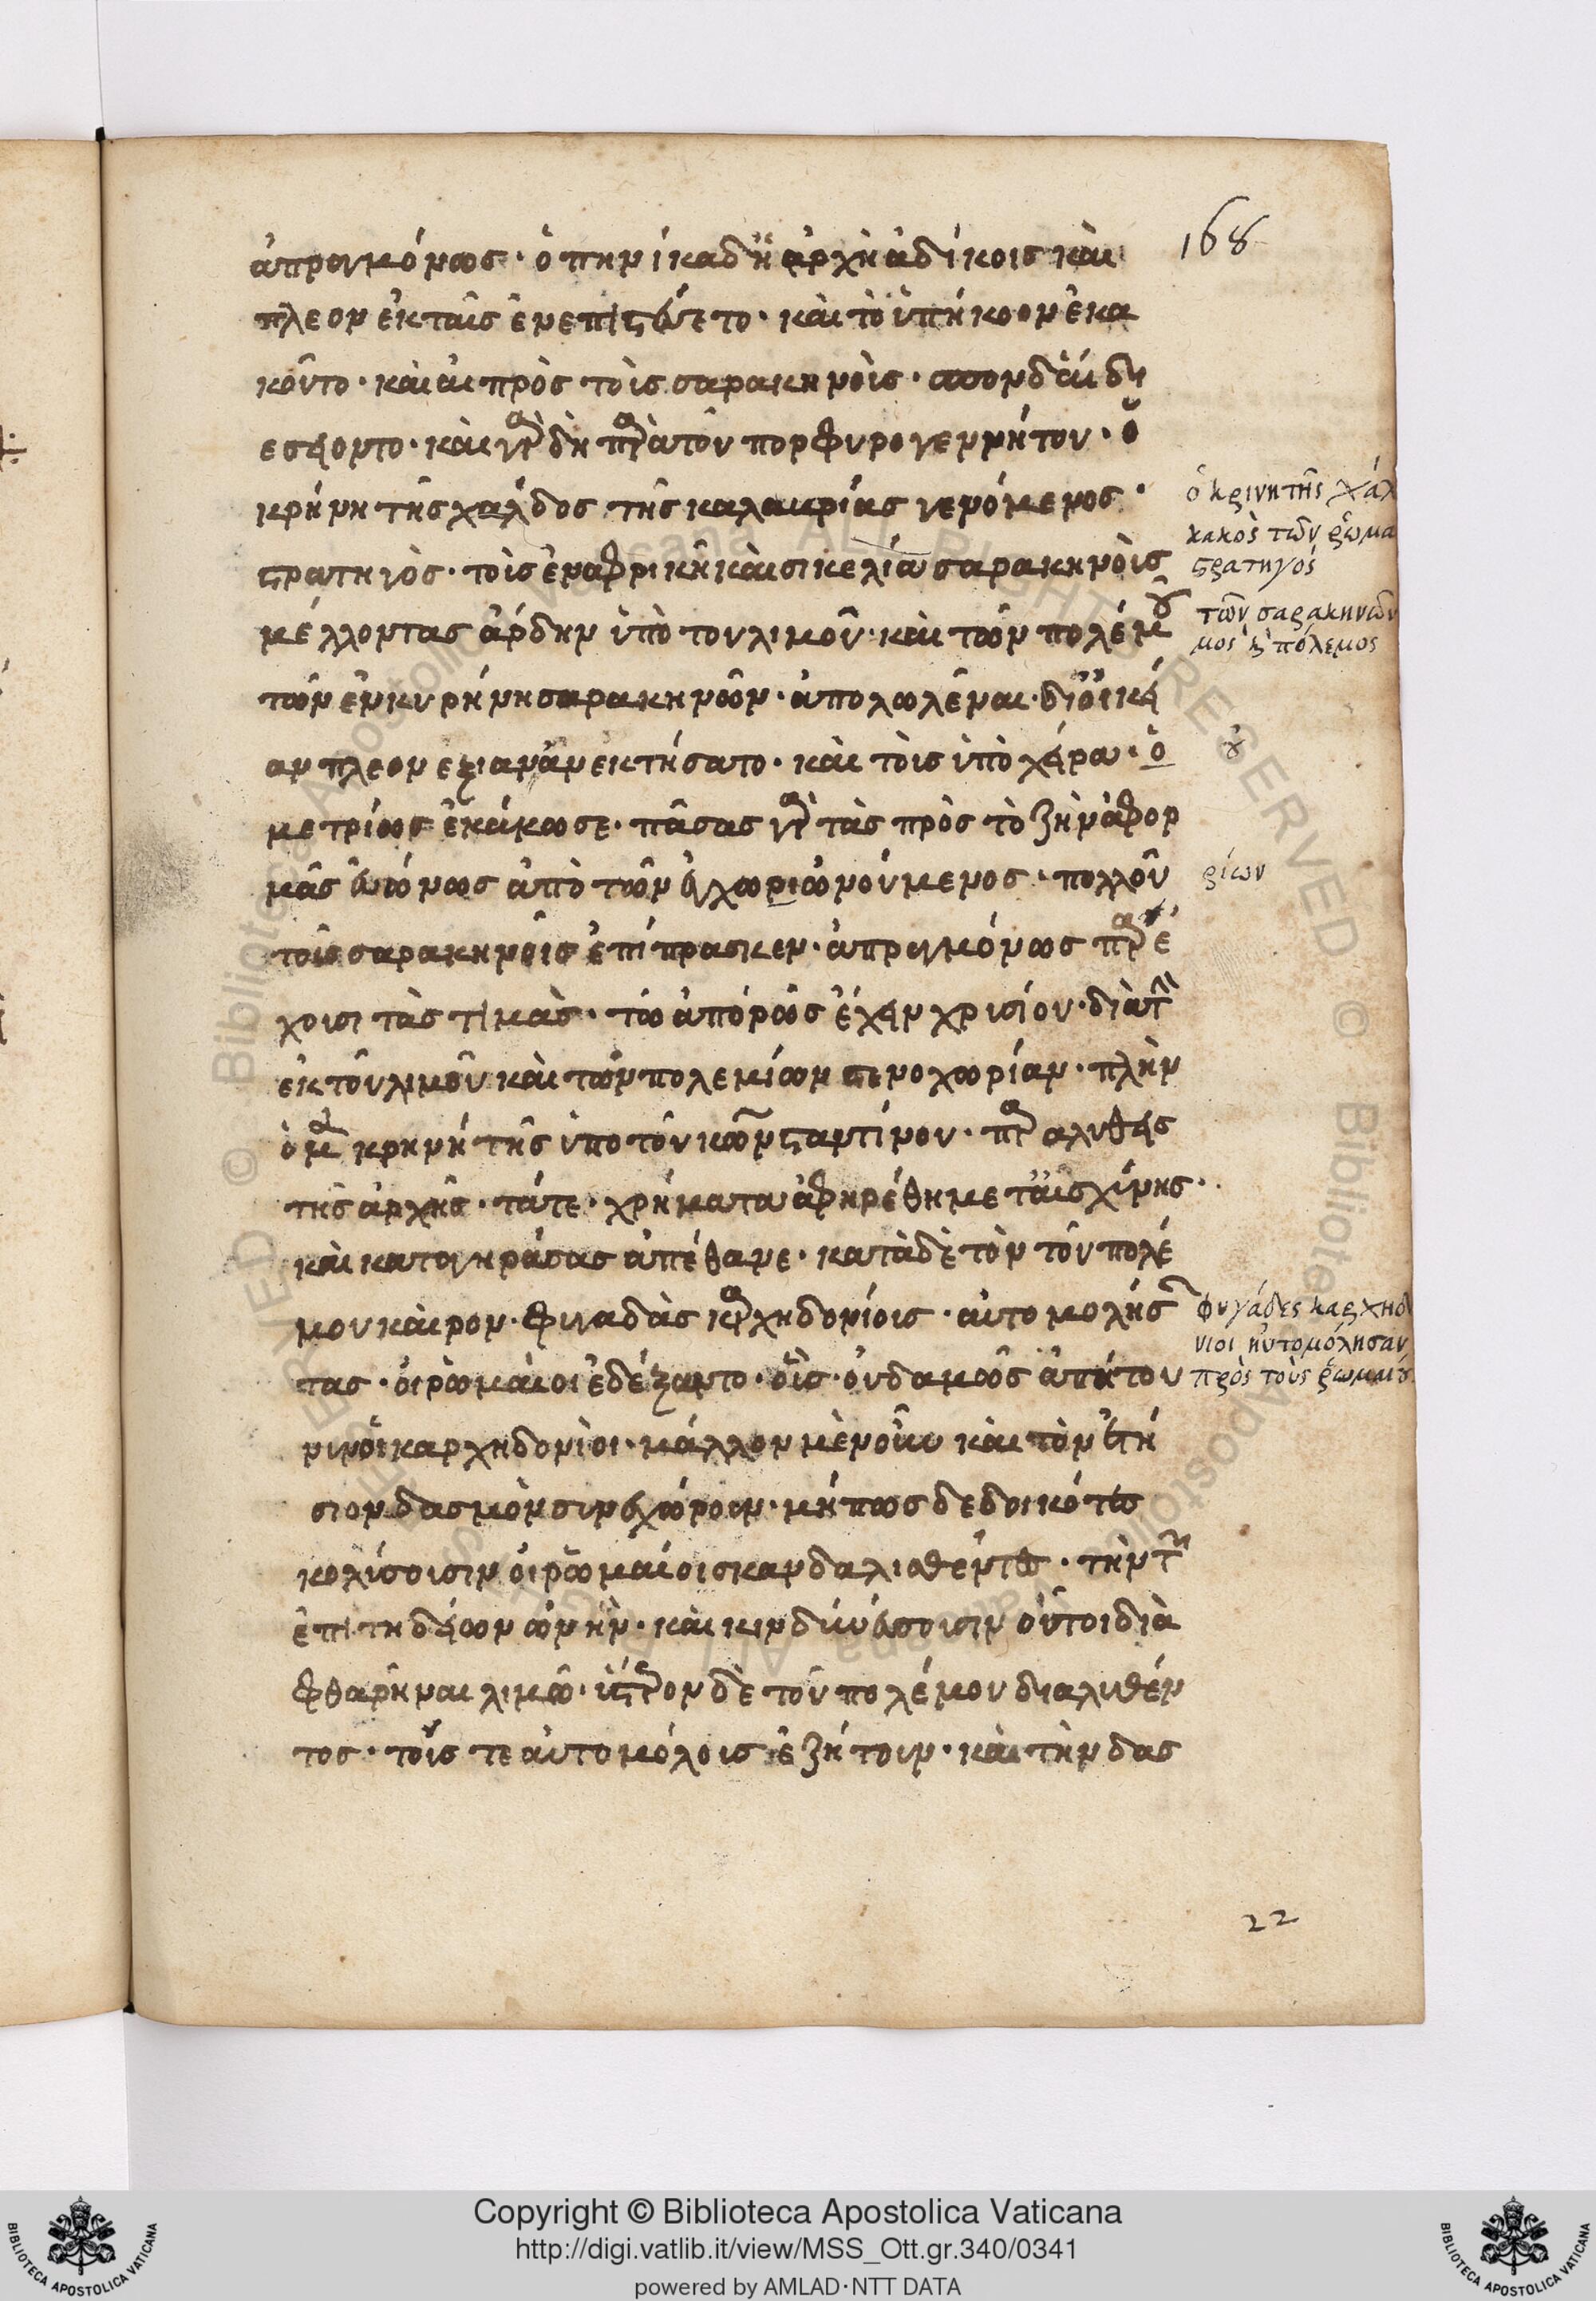 168
ἀπραγμόνως · ὁπηνίκα δὴ ἀρχὴ ἀδίκοις καὶ
πλεονέκταις ἐνεπιστεύετο · καὶ τὸ ὑπήκοον ἐκα
κοῦτο · καὶ αἱ πρὸς τοῖς σαρακηνοῖς · σπονδαὶ δι
εσείοντο · καὶ γὰρ δὴ παρὰ τοῦ πορφυρογεννήτου · ὁ
κρήνη τῆς χαλδος τῆς καλαυρίας γενόμενος ·
στρατηγὸς · τοῖς ἐν αφρικῆ καὶ σικελία σαρακηνοῖς
μέλλοντας ἄρδην ὑπὸ του λιμοῦ · καὶ τῶν πολέμ
τῶν ἐν κυρήνη σαρακηνῶν · ἀπολωλέναι · διοικεῖ
αν πλεονεξιαν ἀνεκτήσατο · καὶ τοῖς ὑπὸ χεῖρα · ὁ
μετρίως ἐκάκωσε · πᾶσας γὰρ τὰς πρὸς τὸ ζῆν ἀφορ
μὰς εὐώνως ἀπὸ τῶν ἐγχωριω ὠνούμενος · πολλοῦ
τοῖς σαρακηνοῖς ἐπίπρασκεν · ἀπραγμόνως παρέ
χουσι τὰς τιμὰς · τῶ ἀπόρως ἔχειν χρισίου · διὰ τὴν
ἐκ τοῦ λιμοῦ καὶ τῶν πολεμίων στενοχωρίαν · πλὴν
ὁ μὲν κρηνή τῆς ὑπο τοῦ κωνσταντίνου · παραλυθεὶς
τῆς ἀρχῆς · τάτε · χρήματα ἀφηρέθη μετ αἰσχύνης ·
καὶ καταγηράσας ἀπέθανε · κατὰ δὲ τὸν τοῦ πολέ
μου καιρον · φυγαδὰς καρχηδονίοις · αὐτομολήσαν
τας · οἱ ρωμαῖοι ἐδέξαντο · οὓς · οὐδαμῶς ἀπήτου
ν οἱ καρχηδονίοι · μάλλον μὲν οὖν καὶ τὸν ἐτή
σιον δασμὸν συνεχώρουν · μήπως δεδοικότες
κολύσουσιν οἱ ρωμαίοι σκανδαλισθέντες · τὴν τῶν
ἐπιτηδείων ὠνὴν · καὶ κινδυνεύσουσιν οὗτοι δια
φθαρῆναι λιμῶ · ὕστερον δὲ τοῦ πολέμου διαλυθέν
τος · τούς τε αὐτομόλοις ἐζήτουν · καὶ τὴν δας
ὁ κρινητῆς χάλ
κακὸς τῶν ῥωμα
στρατηγός
τῶν σαρακηνῶν
μος κ πόλεμος
ρίων
φυγάδες καρχηδ
νιοι ηὐτομόλησαν
πρὸς τοὺς ῥωμαι
22
Copyright © Biblioteca Apostolica Vaticana
http://digi.vatlib.it/view/MSS_Ott.gr.340/0341
powered by AMLAD·NTT DATA
BIBLIOTECA APOSTOLICA VATICANA
BIBLIOTECA APOSTOLICA VATICANA